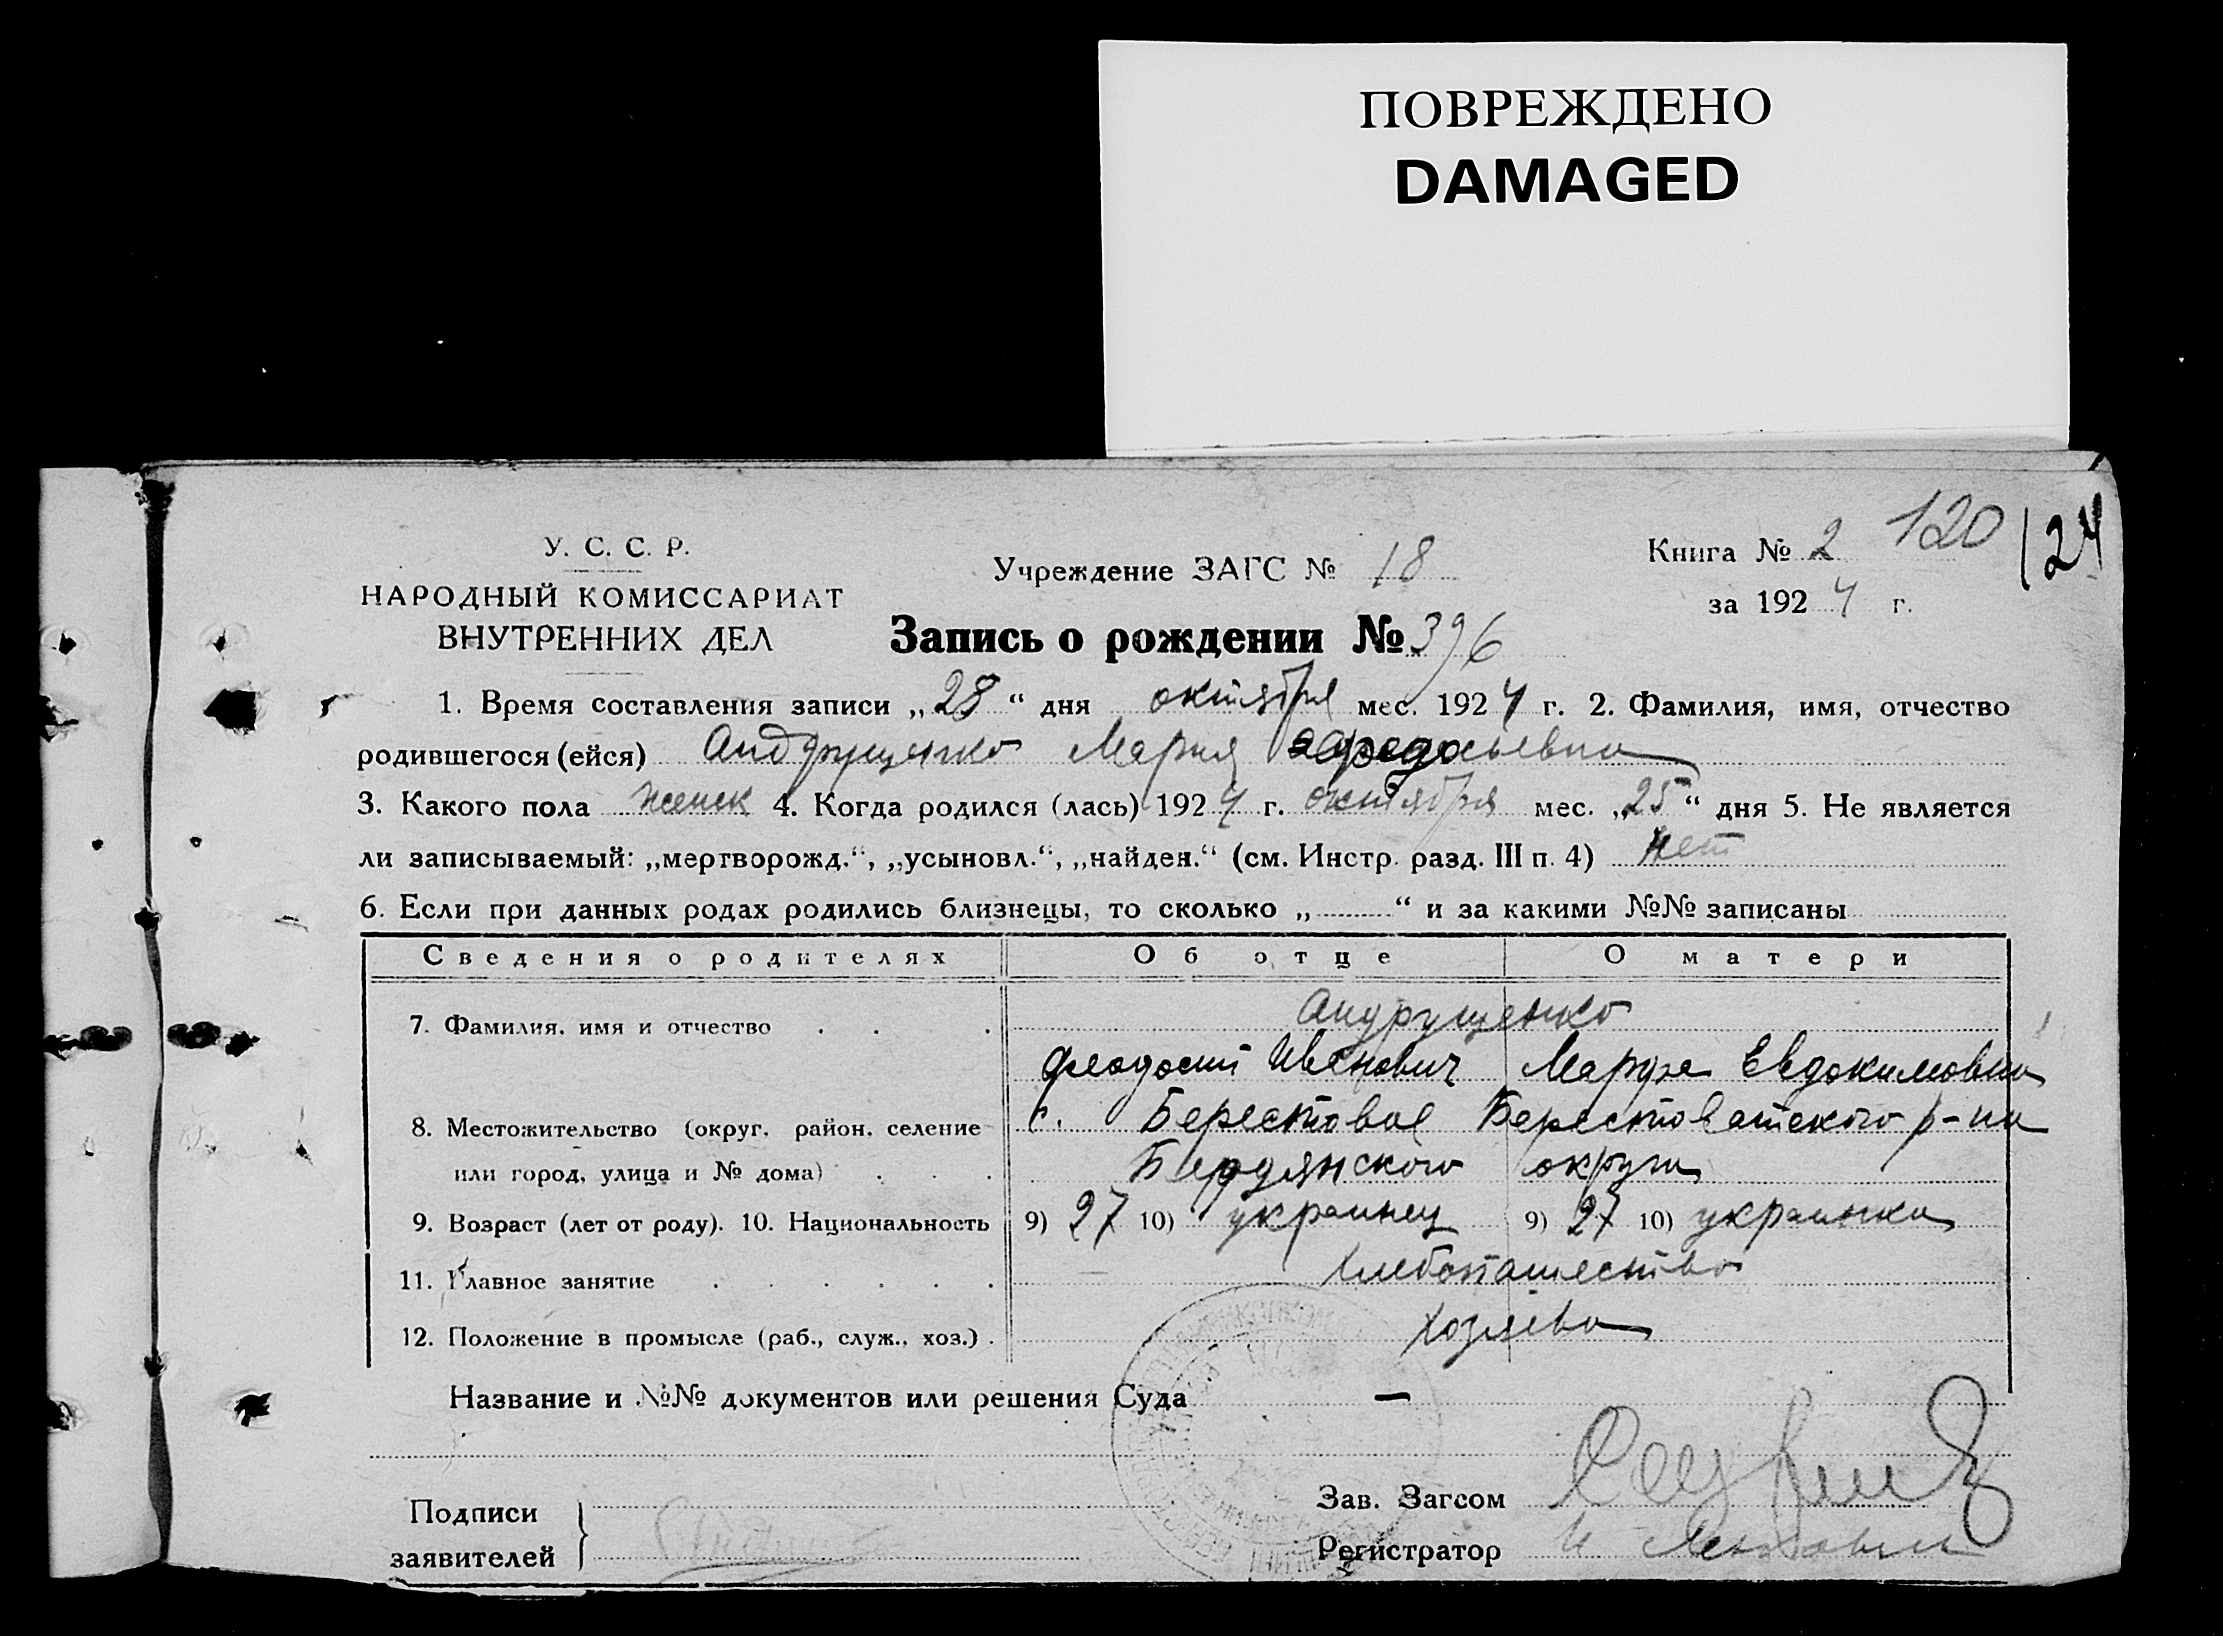 ПОВРЕЖДЕНО
DAMAGED
120
124
У. С. С. Р.
НАРОДНЫЙ КОМИССАРИАТ
ВНУТРЕННИХ ДЕЛ
Учреждение ЗАГС № 18
Книга № 2
за 1924 г.
Запись о рождении № 396
1. Время составления записи „28“ дня октября мес. 1924 г. 2. Фамилия, имя, отчество
родившегося (ейся) Андрущенко Мария
3. Какого пола женск 4. Когда родился (лась) 1924 г. октября мес. „25“ дня 5. Не является
ли записываемый: „мертворожд.“, „усыновл.“, „найден.“ (см. Инстр. разд. III п. 4) нет
6. Если при данных родах родились близнецы, то сколько „ “ и за какими №№ записаны
Сведения о родителях Об отце О матери
7. Фамилия, имя и отчество Андрущенко
Феодосий Иванович Марфа Евдокимовна
8. Местожительство (округ, район, селение с. Берестовое Берестоватского р-на
или город, улица и № дома) Бердянского округа
9. Возраст (лет от роду). 10. Национальность 9) 27 10) украинец 9) 27 10) украинка
11. Главное занятие хлебопашество
12. Положение в промысле (раб., служ., хоз.) хозяева
Название и №№ документов или решения Суда —
Подписи
заявителей
Зав. Загсом
Регистратор